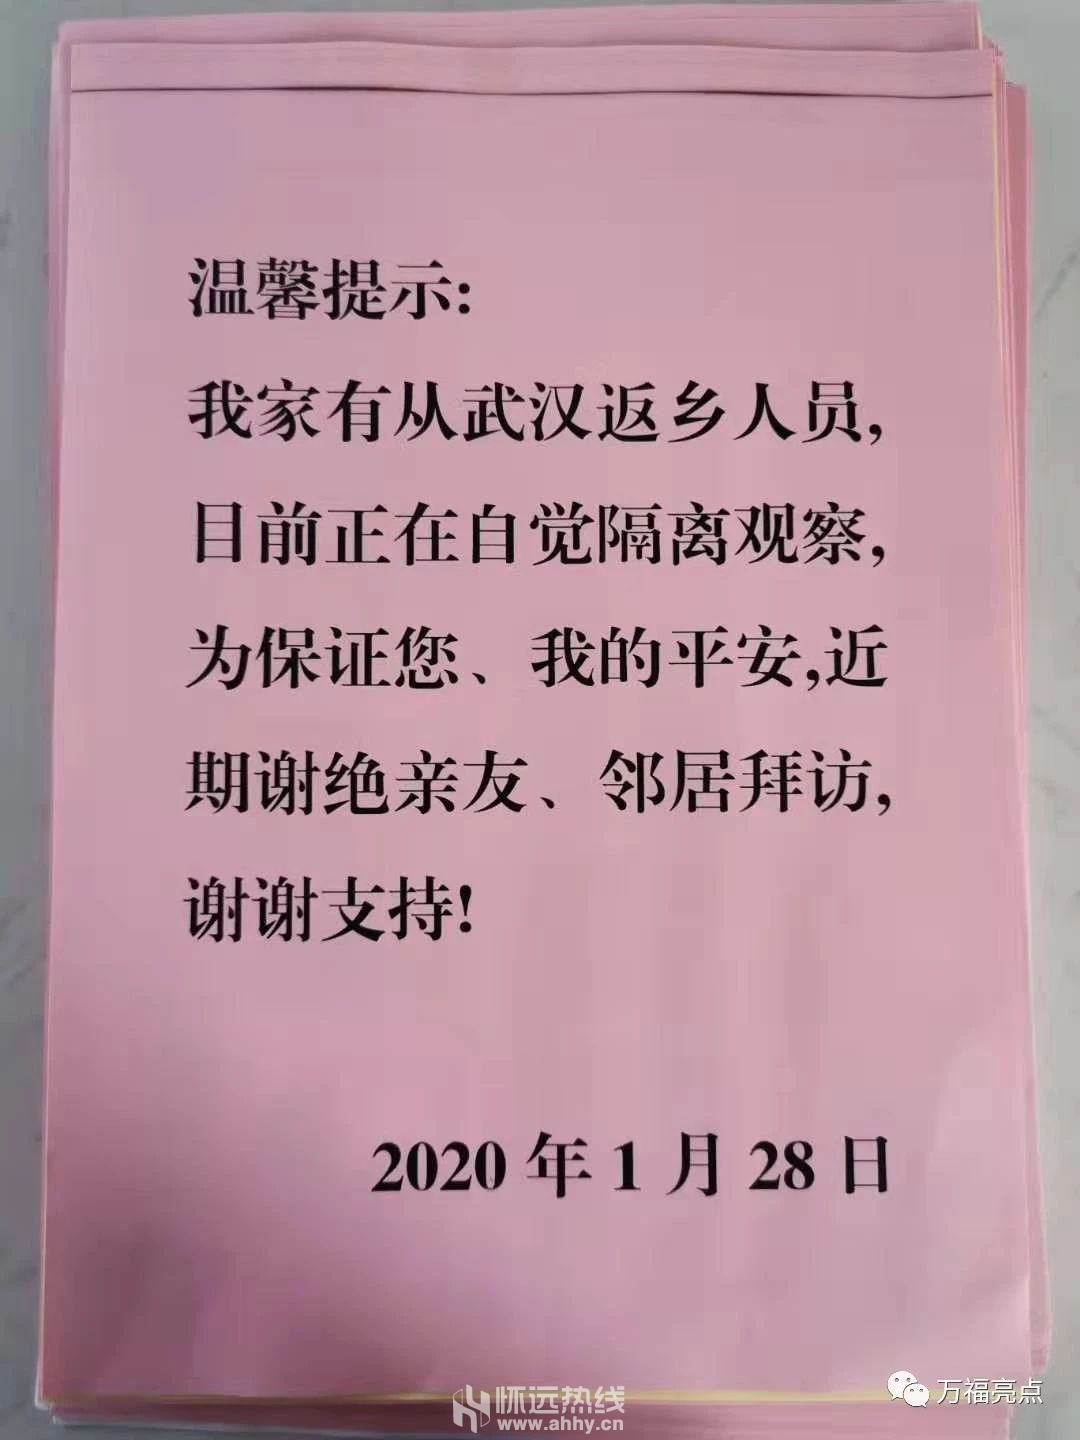 温馨提示:
我家有从武汉返乡人员,
目前正在自觉隔离观察,
为保证您、我的平安,近
期谢绝亲友、邻居拜访,
谢谢支持!
2020 年 1 月 28 日
万福亮点
怀远热线
www.ahhy.cn